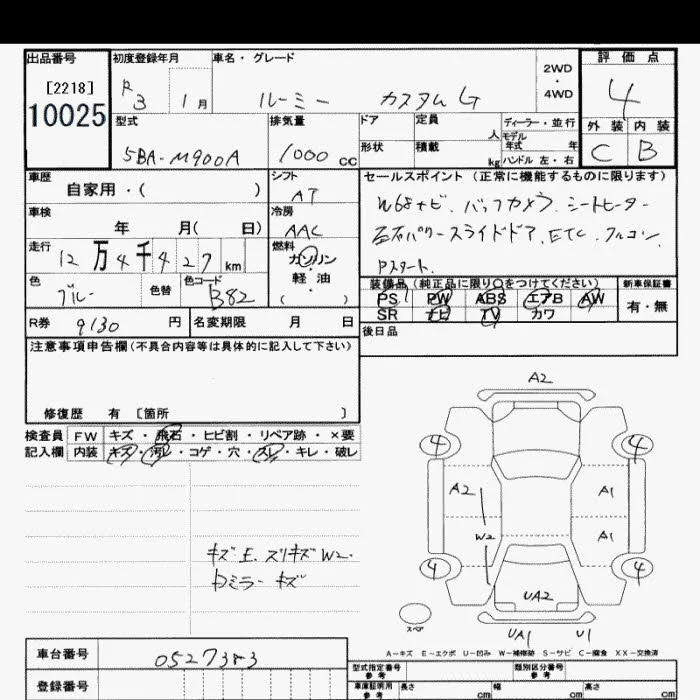 出品番号 初度登録年月 車名・グレード 2WD・4WD 評価点
[2218] R 3 1月 ルーミー カスタムG 4
10025 型式 排気量 ドア 定員 人 ディーラー・並行 外装 内装
5BA-M900A 1000 CC 形状 積載 kg モデル年式 年 ハンドル 左・右 C B
車歴 自家用・( ) シフト AT セールスポイント (正常に機能するものに限ります)
車検 年 月( 日) 冷房 AAC
走行 12万4千427km 燃料 ガソリン・軽油 ( )
W68ナビ、バックカメラ、シートヒーター
左右パワースライドドア、ETC、フルコン、
Pスタート、
色 ブルー 色替 色コード B82
装備品 (純正品に限り○をつけてください) 新車保証書
PS PW ABS エアB AW 有・無
SR ナビ TV カワ
R券 9130円 名変期限 月 日 後日品
注意事項申告欄(不具合内容等は具体的に記入して下さい)
修復歴 有 [箇所 ]
検査員 FW キズ・飛石・ヒビ割・リペア跡・×要
記入欄 内装 キズ・汚レ・コゲ・穴・スレ・キレ・破レ
キズ E. スリキズ W2.
ミラー キズ
A2
4 4
A2 A1
W2 A1
4 4
UA2
スペア UA1 U1
A-キズ E-エクボ U-凹み W-補修跡 S-サビ C-腐食 XX-交換済
車台番号 0527383
登録番号
型式指定番号 参考 類別区分番号 参考
車庫証明用 参考 長さ cm 幅 cm 高さ cm